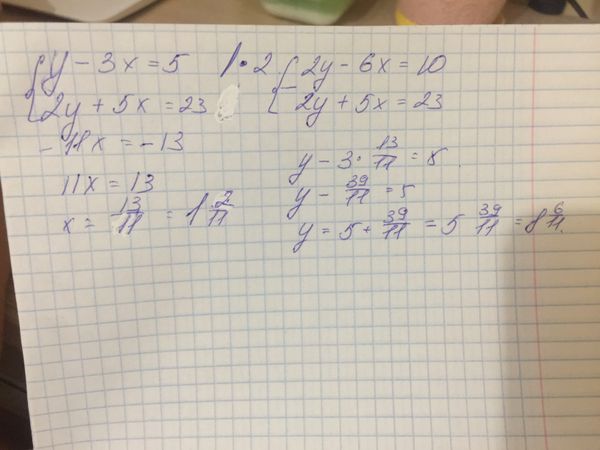 {y - 3x = 5 |·2 {2y - 6x = 10
2y + 5x = 23 - 2y + 5x = 23
- 11x = -13
11x = 13
x = 13/11 = 1 2/11
y - 3 · 13/11 = 5.
y - 39/11 = 5
y = 5 + 39/11 = 5 39/11 = 8 6/11.